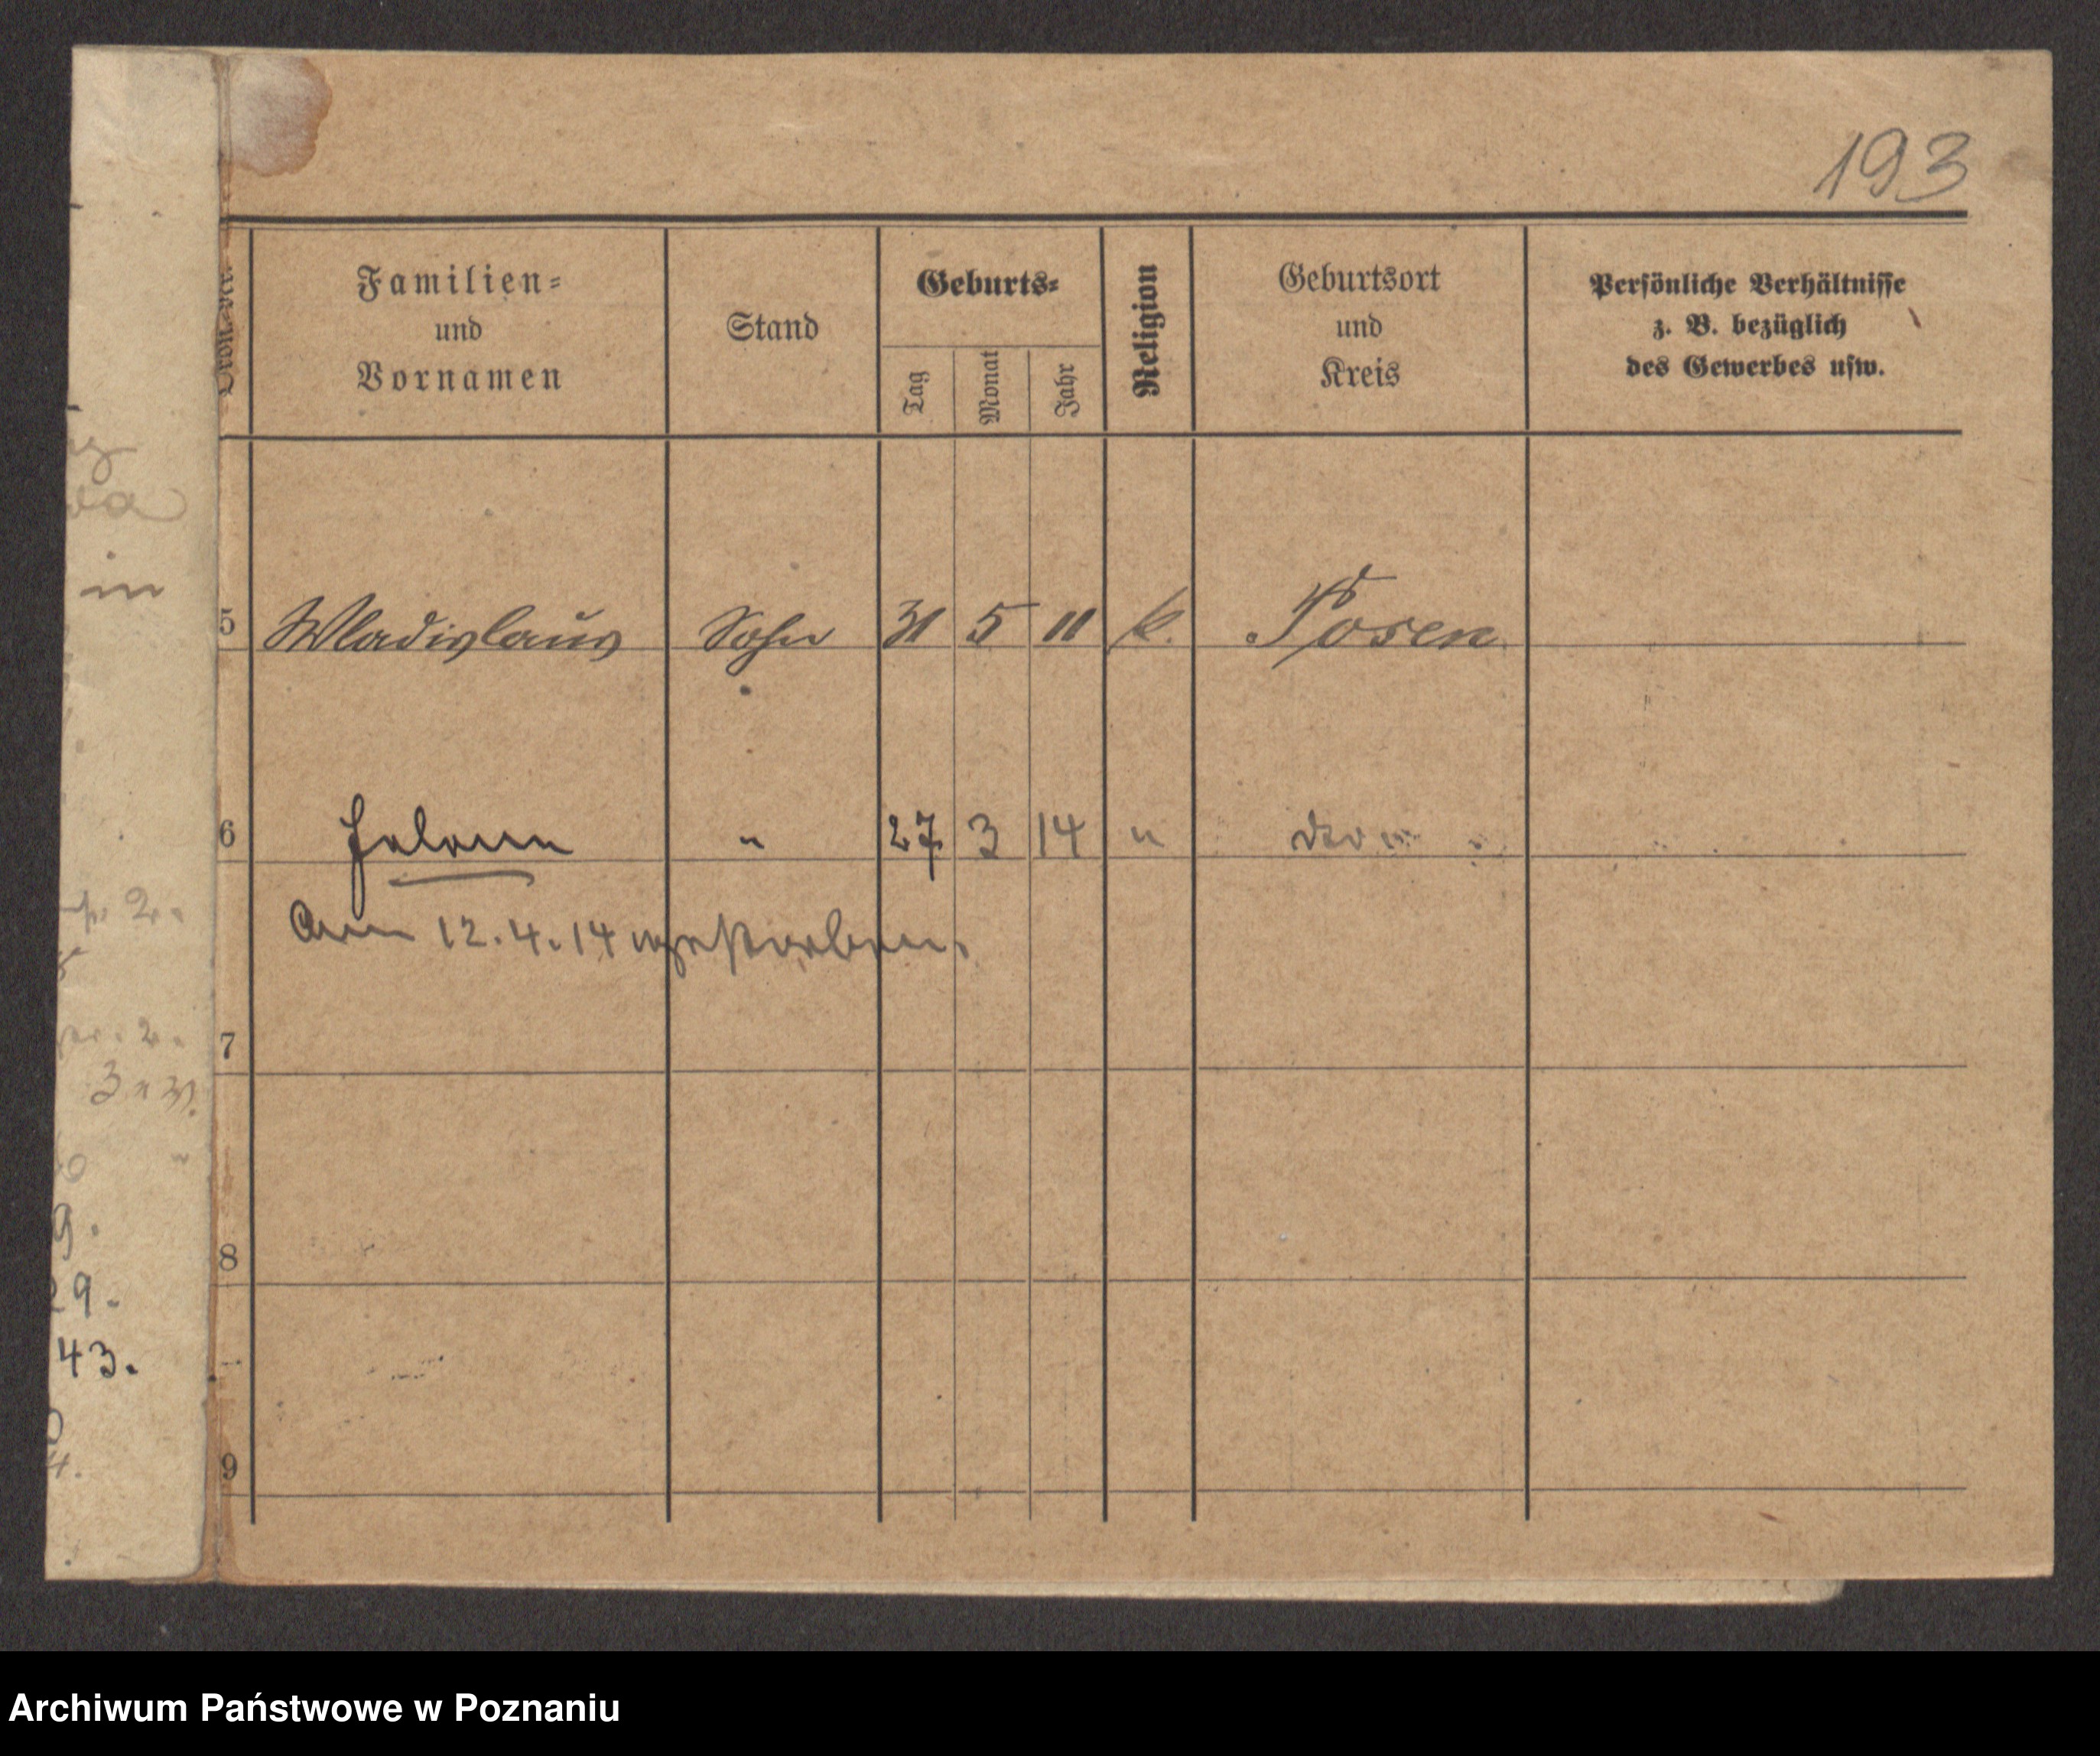 193
Familien=
und
Vornamen
Stand
Geburts=
Tag
Monat
Jahr
Religion
Geburtsort
und
Kreis
Persönliche Verhältnisse
z. B. bezüglich
des Gewerbes usw.
in
5 Wladislaus Sohn 31 5 11 k. Posen
6 " 27 3 14 "
Am 12.4.14
7
8
43.
9
Archiwum Państwowe w Poznaniu